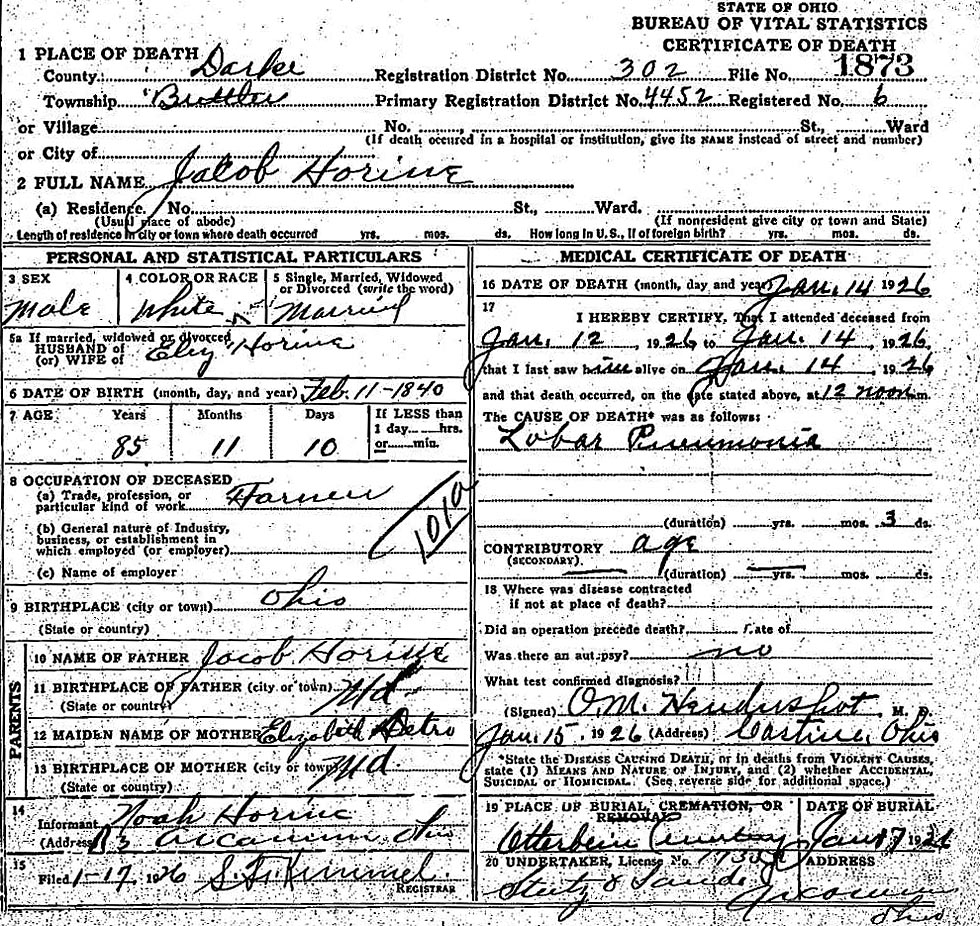 STATE OF OHIO
BUREAU OF VITAL STATISTICS
CERTIFICATE OF DEATH
1 PLACE OF DEATH
County Darke Registration District No. 302 File No. 1873
Township Buttler Primary Registration District No. 4452 Registered No. 6
or Village No. St., Ward
(If death occured in a hospital or institution, give its NAME instead of street and number)
or City of
2 FULL NAME Jacob Horine
(a) Residence. No. St., Ward.
(Usual place of abode) (If nonresident give city or town and State)
Length of residence in city or town where death occurred yrs. mos. ds. How long in U.S., if of foreign birth? yrs. mos. ds.
PERSONAL AND STATISTICAL PARTICULARS
3 SEX 4 COLOR OR RACE 5 Single, Married, Widowed
or Divorced (write the word)
Male White Married
5a If married, widowed or divorced
HUSBAND of
(or) WIFE of Eliz Horine
6 DATE OF BIRTH (month, day, and year) Feb. 11-1840
7 AGE Years Months Days If LESS than
1 day hrs.
or min.
85 11 10
8 OCCUPATION OF DECEASED
(a) Trade, profession, or
particular kind of work Farmer
(b) General nature of Industry,
business, or establishment in
which employed (or employer)
101a
(c) Name of employer
9 BIRTHPLACE (city or town) Ohio
(State or country)
PARENTS
10 NAME OF FATHER Jacob Horine
11 BIRTHPLACE OF FATHER (city or town) Md
(State or country)
12 MAIDEN NAME OF MOTHER Elizabeth Detro
13 BIRTHPLACE OF MOTHER (city or town) Md
(State or country)
14
Informant Noah Horine
(Address) R 3 Arcanum Ohio
15
Filed 1-17, 1926 S. F. Kimmel
REGISTRAR
MEDICAL CERTIFICATE OF DEATH
16 DATE OF DEATH (month, day and year) Jan. 14 1926
17
I HEREBY CERTIFY, That I attended deceased from
Jan. 12, 1926 to Jan. 14, 1926,
that I last saw him alive on Jan. 14, 1926
and that death occurred, on the date stated above, at 12 noon m.
The CAUSE OF DEATH* was as follows:
Lobar Pneumonia
(duration) yrs. mos. 3 ds.
CONTRIBUTORY age
(SECONDARY)
(duration) yrs. mos. ds.
18 Where was disease contracted
if not at place of death?
Did an operation precede death? Date of
Was there an autopsy? no
What test confirmed diagnosis?
(Signed) O.M. Hendershot, M. D.
Jan. 15, 1926 (Address) Castine, Ohio
*State the DISEASE CAUSING DEATH, or in deaths from VIOLENT CAUSES,
state (1) MEANS AND NATURE OF INJURY, and (2) whether ACCIDENTAL,
SUICIDAL or HOMICIDAL. (See reverse side for additional space.)
19 PLACE OF BURIAL, CREMATION, OR
REMOVAL DATE OF BURIAL
Otterbein Cemetery Jan 17 1926
20 UNDERTAKER, License No. ADDRESS
Stutz & Arcanum
Ohio